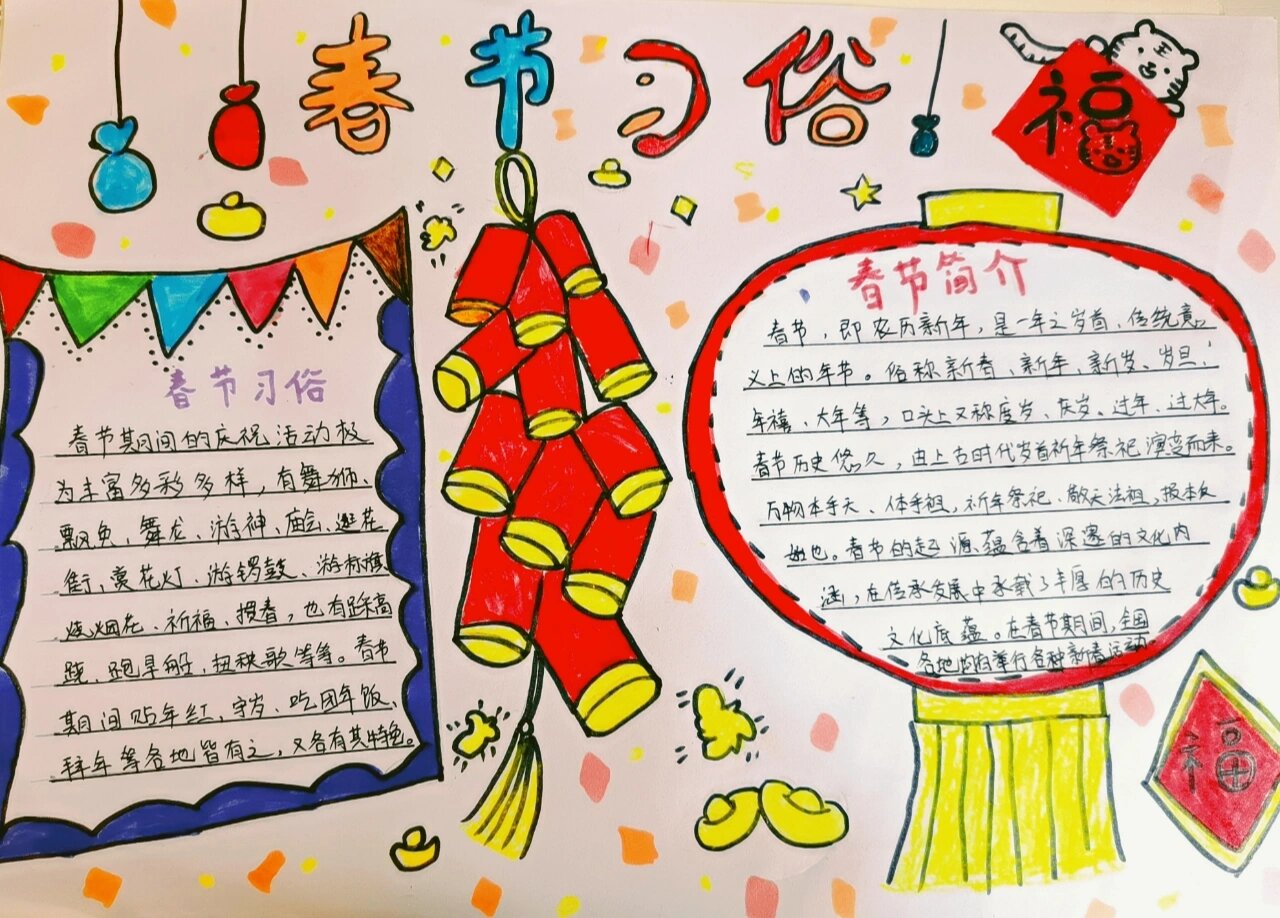 春节习俗
福
春节习俗
春节期间的庆祝活动极
为丰富多彩多样，有舞狮、
飘色、舞龙、游神、庙会、逛花
街、赏花灯、游锣鼓、游标旗
烧烟花、祈福、掼春，也有踩高
跷、跑旱船、扭秧歌等等。春节
期间贴年红、守岁、吃团年饭、
拜年等各地皆有之，又各有其特色。
春节简介
春节，即农历新年，是一年之岁首、传统意
义上的年节。俗称新春、新年、新岁、岁旦、
年禧、大年等，口头上又称度岁、庆岁。过年、过大年。
春节历史悠久，由上古时代岁首祈年祭祀演变而来。
万物本乎天、人本乎祖，祈年祭祀、敬天法祖，报本反
始也。春节的起源蕴含着深邃的文化内
涵，在传承发展中承载了丰厚的历史
文化底蕴。在春节期间，全国
各地均有举行各种新春活动
福